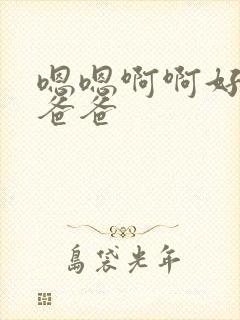 嗯嗯啊啊好
爸爸
島袋光年